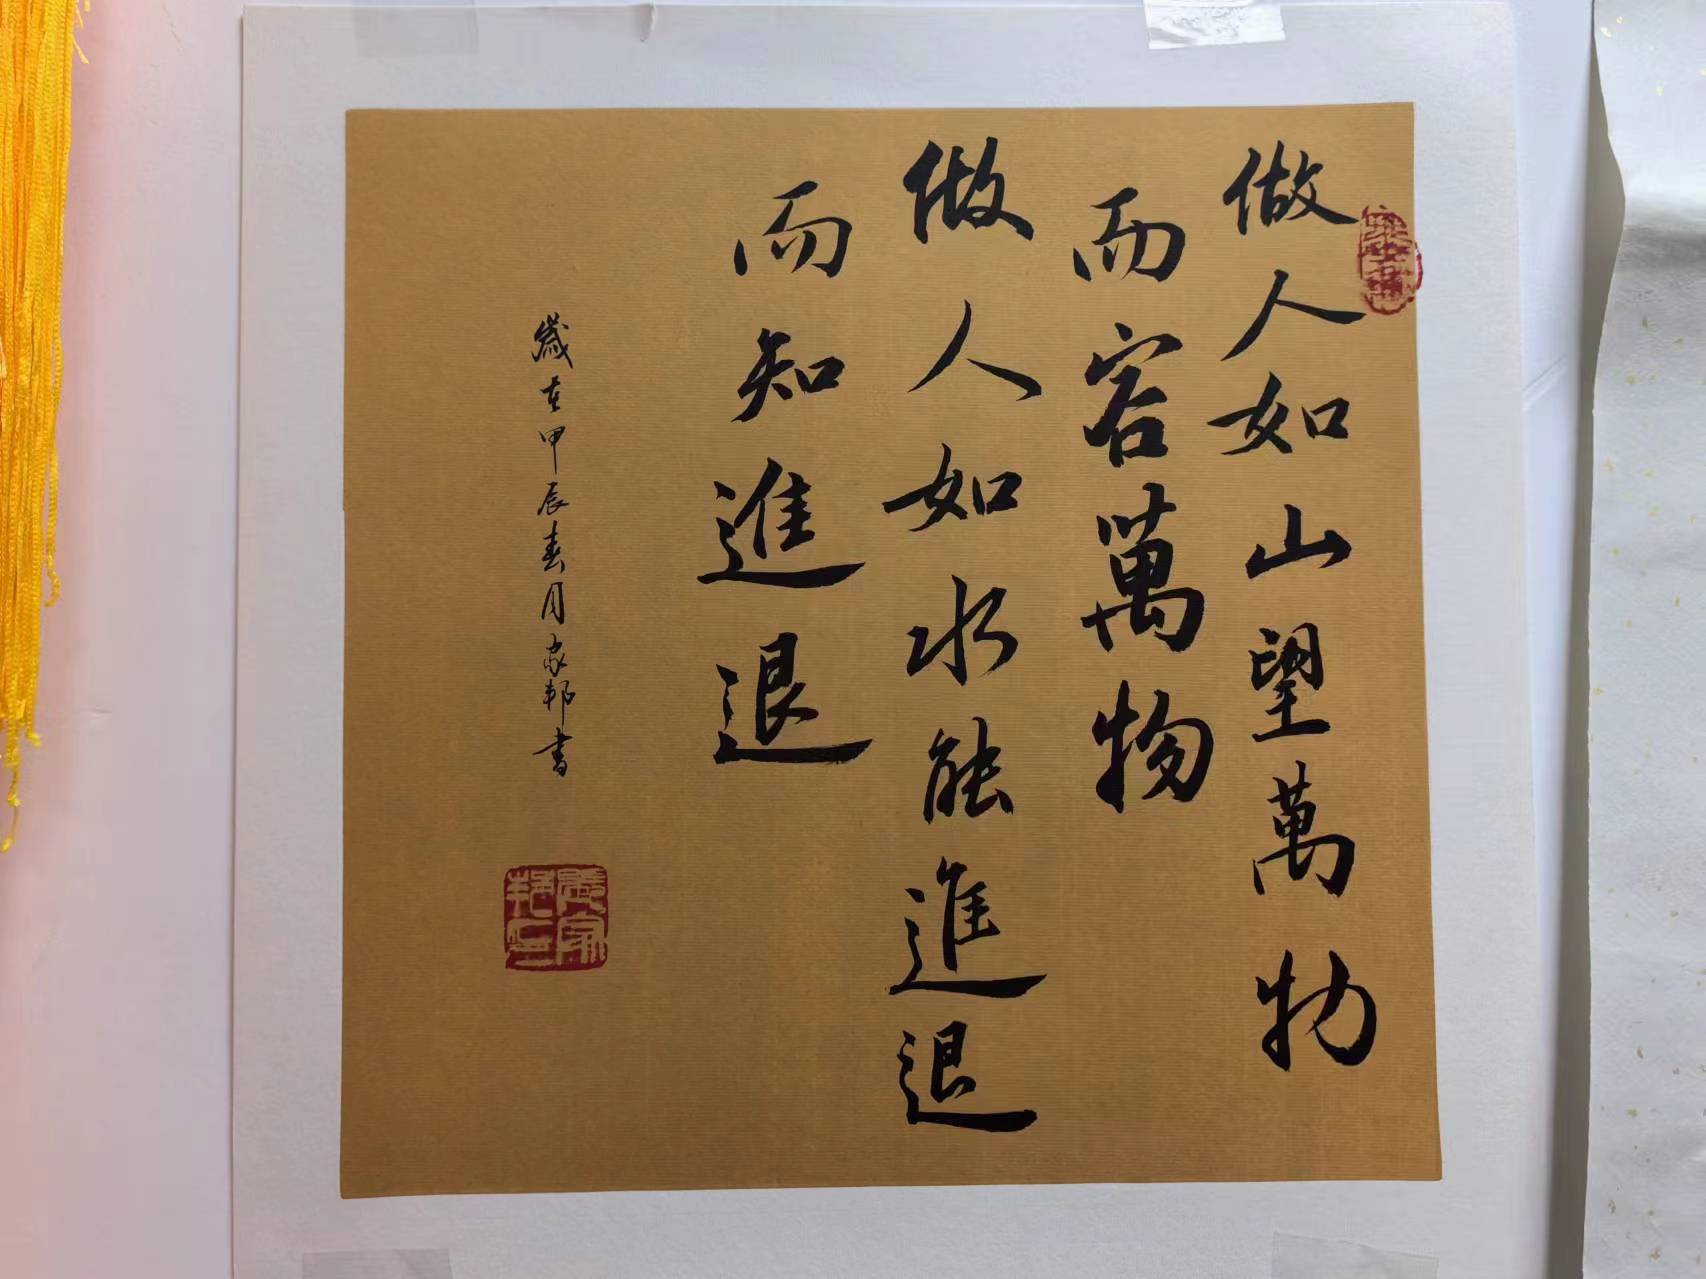 做人如山望萬物
而容萬物
做人如水能進退
而知進退
歲在甲辰春月家邦書